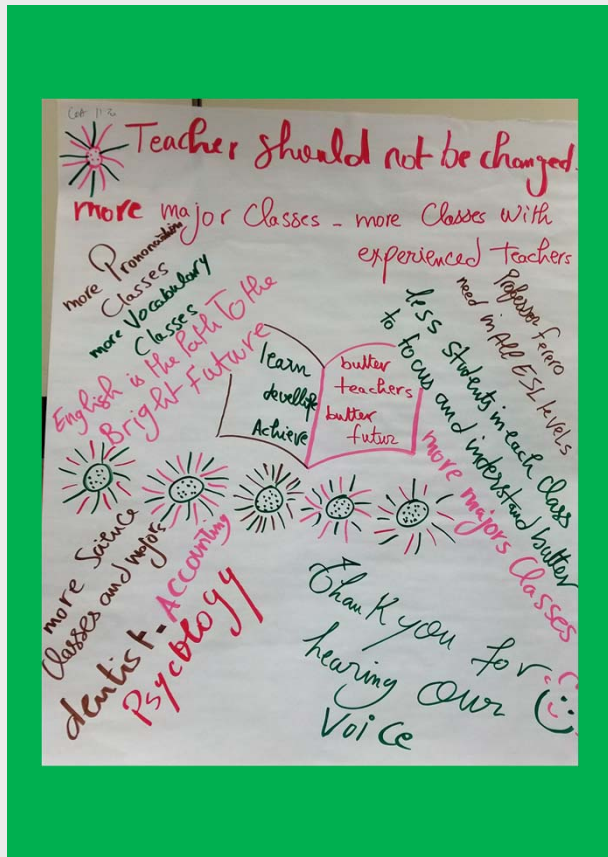 Teacher should not be changed.
more major Classes - more Classes with
experienced teachers
more Prononaciation
Classes
more Vocabulary
Classes
English is the Path To the
Bright Future
learn
devellope
Achieve
butter
teachers
butter
futur
Professor Ferero
need in All ESL levels
less students in each class
to focus and inderstand butter
more majors Classes
more Science
Classes and majors
dentist - Accounting
Psycology
Thank you for
hearing our
Voice